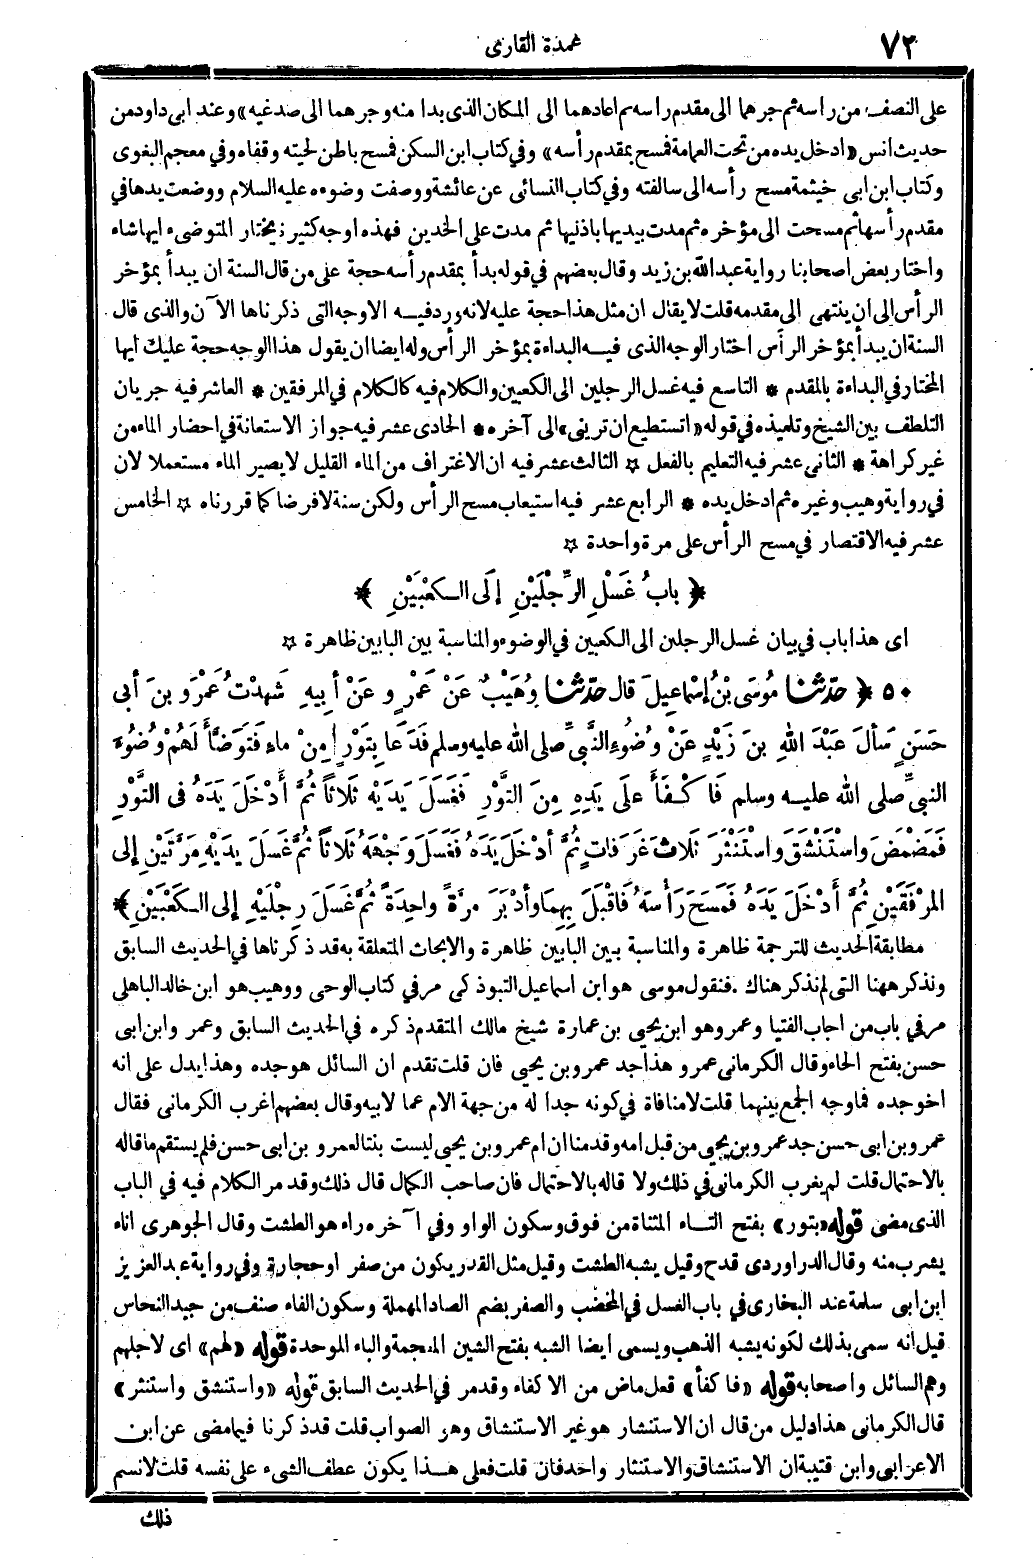 ٧٢
عمدة القارى
على النصف من رأسه ثم جرهما الى مقدم رأسه ثم اعادهما الى المكان الذى بدا منه وجرهما الى صدغيه» وعند ابى داود من
حديث انس «ادخل يده من تحت العمامة فمسح بمقدم رأسه» وفي كتاب ابن السكن فمسح باطن لحيته وقفاه وفي معجم البغوى
وكتاب ابن ابى خيثمة مسح رأسه الى سالفته وفي كتاب النسائى عن عائشة ووصفت وضوءه عليه السلام ووضعت يدها في
مقدم رأسها ثم مسحت الى مؤخره ثم مدت بيديها باذنيها ثم مدت على الخدين فهذه اوجه كثيرة يختار المتوضىء ايها شاء
واختار بعض اصحابنا رواية عبد الله بن زيد وقال بعضهم في قوله بدأ بمقدم رأسه حجة على من قال السنة ان يبدأ بمؤخر
الرأس الى ان ينتهى الى مقدمه قلت لا يقال ان مثل هذا حجة عليه لانه ورد فيه الاوجه التى ذكرناها الآن والذى قال
السنة ان يبدأ بمؤخر الرأس اختار الوجه الذى فيه البداءة بمؤخر الرأس وله ايضا ان يقول هذا الوجه حجة عليك ايها
المختار في البداءة بالمقدم * التاسع فيه غسل الرجلين الى الكعبين والكلام فيه كالكلام في المرفقين * العاشر فيه جريان
التلطف بين الشيخ وتلميذه في قوله «اتستطيع ان ترينى» الى آخره * الحادى عشر فيه جواز الاستعانة في احضار الماء من
غير كراهة * الثانى عشر فيه التعليم بالفعل ☆ الثالث عشر فيه ان الاغتراف من الماء القليل لا يصير الماء مستعملا لان
في رواية وهيب وغيره ثم ادخل يده * الرابع عشر فيه استيعاب مسح الرأس ولكن سنة لا فرضا كما قررناه ☆ الخامس
عشر فيه الاقتصار في مسح الرأس على مرة واحدة ☆
﴿ بابُ غَسْلِ الرِّجْلَيْنِ إلَى الكَعْبَيْنِ ﴾
اى هذا باب في بيان غسل الرجلين الى الكعبين في الوضوء والمناسبة بين البابين ظاهرة ☆
٥٠ ﴿ حدّثنا مُوسَى بْنُ إسْماعِيلَ قال حدّثنا وُهَيْبٌ عَنْ عَمْرٍو عَنْ أبِيهِ شَهِدْتُ عَمْرَو بنَ أبى
حَسَنٍ سَألَ عَبْدَ اللهِ بنَ زَيْدٍ عَنْ وُضُوءِ النَّبىِّ صلى الله عليه وسلم فَدَعَا بِتَوْرٍ مِنْ ماءٍ فَتَوَضَّأَ لَهُمْ وُضُوءَ
النبىِّ صلى الله عليه وسلم فَاَكْفَأَ علَى يَدِهِ مِنَ التَّوْرِ فَغَسَلَ يَدَيْهِ ثَلاثاً ثُمَّ أدْخَلَ يَدَهُ فى التَّوْرِ
فَمَضْمَضَ واسْتَنْشَقَ واسْتَنْثَرَ ثَلَاثَ غَرَفاتٍ ثُمَّ أدْخَلَ يَدَهُ فَغَسَلَ وَجْهَهُ ثَلَاثاً ثُمَّ غَسَلَ يَدَيْهِ مَرَّتَيْنِ إلى
المِرْفَقَيْنِ ثُمَّ أدْخَلَ يَدَهُ فَمَسَحَ رَأسَهُ فَاقْبَلَ بِهِمَا وأدْبَرَ مرَّةً واحِدَةً ثُمَّ غَسَلَ رِجْلَيْهِ إلى الكَعْبَيْنِ ﴾
مطابقة الحديث للترجمة ظاهرة والمناسبة بين البابين ظاهرة والابحاث المتعلقة به قد ذكرناها في الحديث السابق
ونذكر ههنا التى لم نذكر هناك . فنقول موسى هو ابن اسماعيل التبوذكى مر في كتاب الوحى ووهيب هو ابن خالد الباهلى
مر في باب من اجاب الفتيا وعمرو هو ابن يحيى بن عمارة شيخ مالك المتقدم ذكره في الحديث السابق وعمرو ابن ابى
حسن بفتح الحاء وقال الكرمانى عمرو هذا جد عمرو بن يحيى فان قلت تقدم ان السائل هو جده وهذا يدل على انه
اخو جده فما وجه الجمع بينهما قلت لا منافاة في كونه جدا له من جهة الام عما لابيه وقال بعضهم اغرب الكرمانى فقال
عمرو بن ابى حسن جد عمرو بن يحيى من قبل امه وقدمنا ان ام عمرو بن يحيى ليست بنتا لعمرو بن ابى حسن فلم يستقم ما قاله
بالاحتمال قلت لم يغرب الكرمانى في ذلك ولا قاله بالاحتمال فان صاحب الكمال قال ذلك وقد مر الكلام فيه في الباب
الذى مضى قوله «بتور» بفتح التاء المثناة من فوق وسكون الواو وفي آخره راء هو الطشت وقال الجوهرى اناء
يشرب منه وقال الدراوردى قدح وقيل يشبه الطشت وقيل مثل القدر يكون من صفر او حجارة وفي رواية عبد العزيز
ابن ابى سلمة عند البخارى في باب الغسل في المخضب والصفر بضم الصاد المهملة وسكون الفاء صنف من جيد النحاس
قيل انه سمى بذلك لكونه يشبه الذهب ويسمى ايضا الشبه بفتح الشين المعجمة والباء الموحدة قوله «لهم» اى لاجلهم
وهم السائل واصحابه قوله «فاكفأ» فعل ماض من الاكفاء وقد مر في الحديث السابق قوله «واستنشق واستنثر»
قال الكرمانى هذا دليل من قال ان الاستنثار هو غير الاستنشاق وهو الصواب قلت قد ذكرنا فيما مضى عن ابن
الاعرابى وابن قتيبة ان الاستنشاق والاستنثار واحد فان قلت فعلى هذا يكون عطف الشىء على نفسه قلت لا نسلم
ذلك